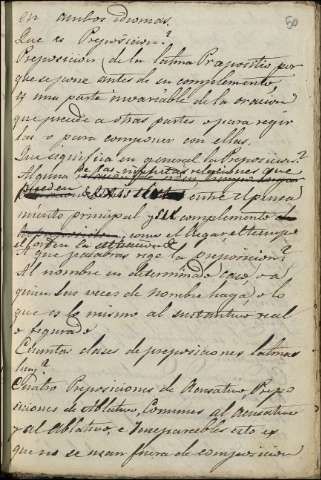 50
en ambos idiomas.
Que es Preposicion?
Preposicion (de la latina Prapositio por
que se pone antes de su complemento,
es una parte invariable de la oracion
que precede a otras partes o para regir
las o para componer con ellas.
Que significa en general la Preposicion?
Alguna de las infinitas relaciones que
pueden entre el pensa
miento principal y su complemento
como el lugar el tiempo
el orden la
A que palabras rige la preposicion?
Al nombre en determinado caso o a
quien sus veces de nombre haga, o lo
que es lo mismo al sustantivo real
o segundo.
Cuantas clases de preposiciones latinas
hay?
Cuatro Preposiciones de Acusativo, Prepo
siciones de Ablativo, Comunes al Acusativo
y al Ablativo, e Inseparables esto es
que no se usan fuera de composicion